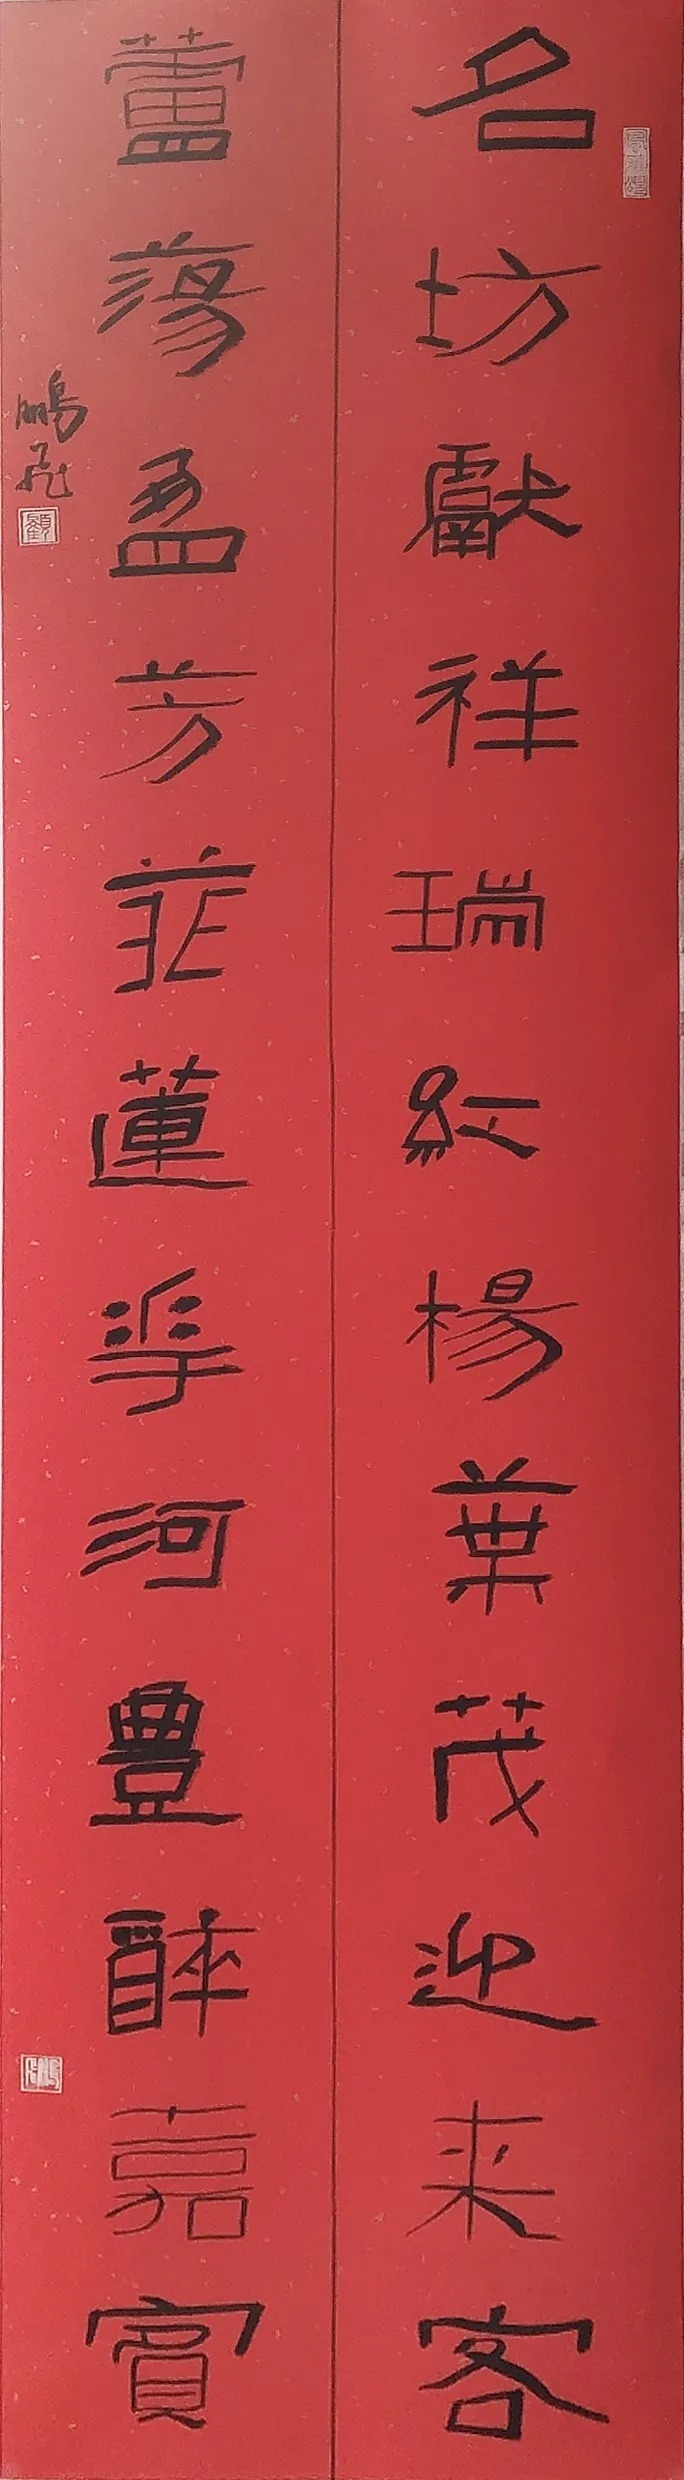 名坊獻祥瑞紅楊葉茂迎来客
蘆蕩盈芳菲蓮華河豊醉嘉賓
鵬飛
顧